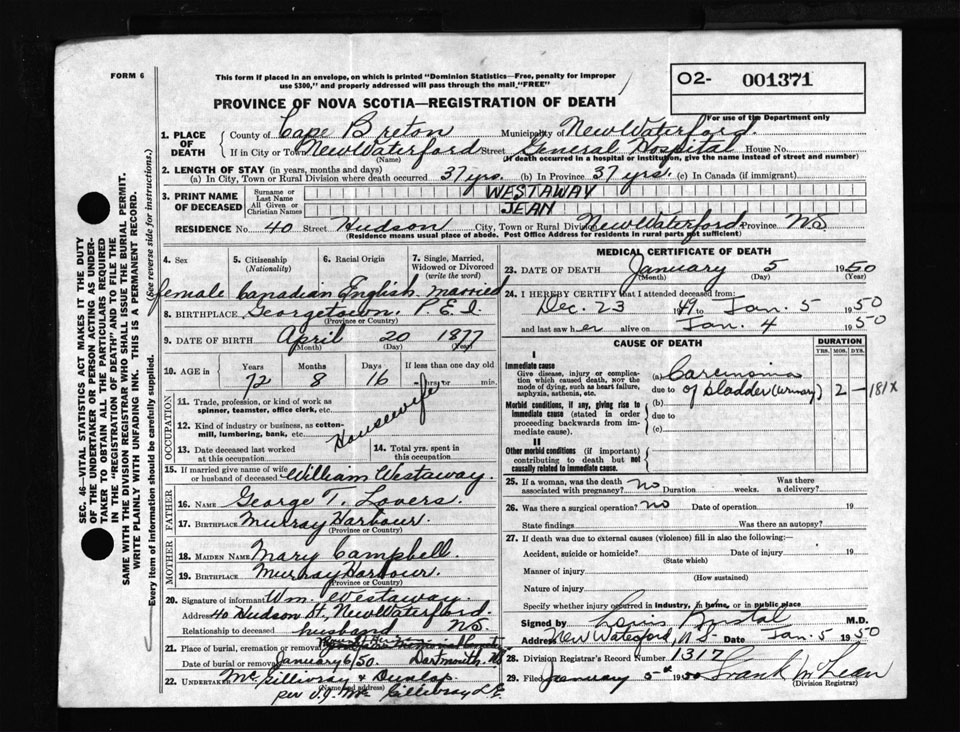 FORM 6
This form if placed in an envelope, on which is printed "Dominion Statistics—Free, penalty for improper
use $300," and properly addressed will pass through the mail "FREE"
O2- 001371
For use of the Department only
PROVINCE OF NOVA SCOTIA—REGISTRATION OF DEATH
1. PLACE OF DEATH County of Cape Breton Municipality of New Waterford.
If in City or Town New Waterford Street General Hospital House No.
(Name) (If death occurred in a hospital or institution, give the name instead of street and number)
2. LENGTH OF STAY (in years, months and days)
(a) In City, Town or Rural Division where death occurred 37 yrs. (b) In Province 37 yrs. (c) In Canada (if immigrant)
3. PRINT NAME OF DECEASED Surname or Last Name WESTAWAY
All Given or Christian Names JEAN
RESIDENCE No. 40 Street Hudson City, Town or Rural Division New Waterford Province NS
(Residence means usual place of abode. Post Office Address for residents in rural parts not sufficient)
4. Sex 5. Citizenship (Nationality) 6. Racial Origin 7. Single, Married, Widowed or Divorced (write the word)
female Canadian English married
8. BIRTHPLACE Georgetown, P.E.I.
(Province or Country)
9. DATE OF BIRTH April 20 1877
(Month) (Day) (Year)
10. AGE in Years Months Days If less than one day old
72 8 16 hrs. or min.
OCCUPATION
11. Trade, profession, or kind of work as spinner, teamster, office clerk, etc. Housewife
12. Kind of industry or business, as cotton-mill, lumbering, bank, etc.
13. Date deceased last worked at this occupation 14. Total yrs. spent in this occupation
15. If married give name of wife or husband of deceased William Westaway.
FATHER
16. Name George T. Lovers.
17. Birthplace Murray Harbour.
(Province or Country)
MOTHER
18. Maiden Name Mary Campbell.
19. Birthplace Murray Harbour.
(Province or Country)
20. Signature of informant Wm. Westaway.
Address 40 Hudson St, New Waterford. NS
Relationship to deceased husband
21. Place of burial, cremation or removal
Date of burial or removal January 6/50. Dartmouth, NS
22. UNDERTAKER McGillivray & Dunlap
(Name and address)
per McGillivray
MEDICAL CERTIFICATE OF DEATH
23. DATE OF DEATH January 5 1950
(Month) (Day) (Year)
24. I HEREBY CERTIFY that I attended deceased from:
Dec. 23 1949 to Jan. 5 1950
and last saw her alive on Jan. 4 1950
CAUSE OF DEATH DURATION
YRS. MOS. DYS.
I
Immediate cause
Give disease, injury or complication which caused death, NOT the mode of dying, such as heart failure, asphyxia, asthenia, etc.
(a) Carcinoma
due to of bladder (urinary) 2 — 181X
Morbid conditions, if any, giving rise to immediate cause (stated in order proceeding backwards from immediate cause).
(b)
due to
(c)
II
Other morbid conditions (if important) contributing to death but not causally related to immediate cause.
25. If a woman, was the death associated with pregnancy? no Duration weeks. Was there a delivery?
26. Was there a surgical operation? no Date of operation 19
State findings Was there an autopsy?
27. If death was due to external causes (violence) fill in also the following:—
Accident, suicide or homicide? Date of injury 19
(State which)
Manner of injury
(How sustained)
Nature of injury
Specify whether injury occurred in industry, in home, or in public place
Signed by M.D.
Address New Waterford, N.S. Date Jan. 5 1950
28. Division Registrar's Record Number 1317
29. Filed January 5th 1950 Frank McLean
(Division Registrar)
SEC. 46—VITAL STATISTICS ACT MAKES IT THE DUTY
OF THE UNDERTAKER OR PERSON ACTING AS UNDER-
TAKER TO OBTAIN ALL THE PARTICULARS REQUIRED
IN THE "REGISTRATION OF DEATH" AND TO FILE THE
SAME WITH THE DIVISION REGISTRAR WHO SHALL ISSUE THE BURIAL PERMIT.
WRITE PLAINLY WITH UNFADING INK. THIS IS A PERMANENT RECORD.
Every item of information should be carefully supplied. (See reverse side for instructions.)